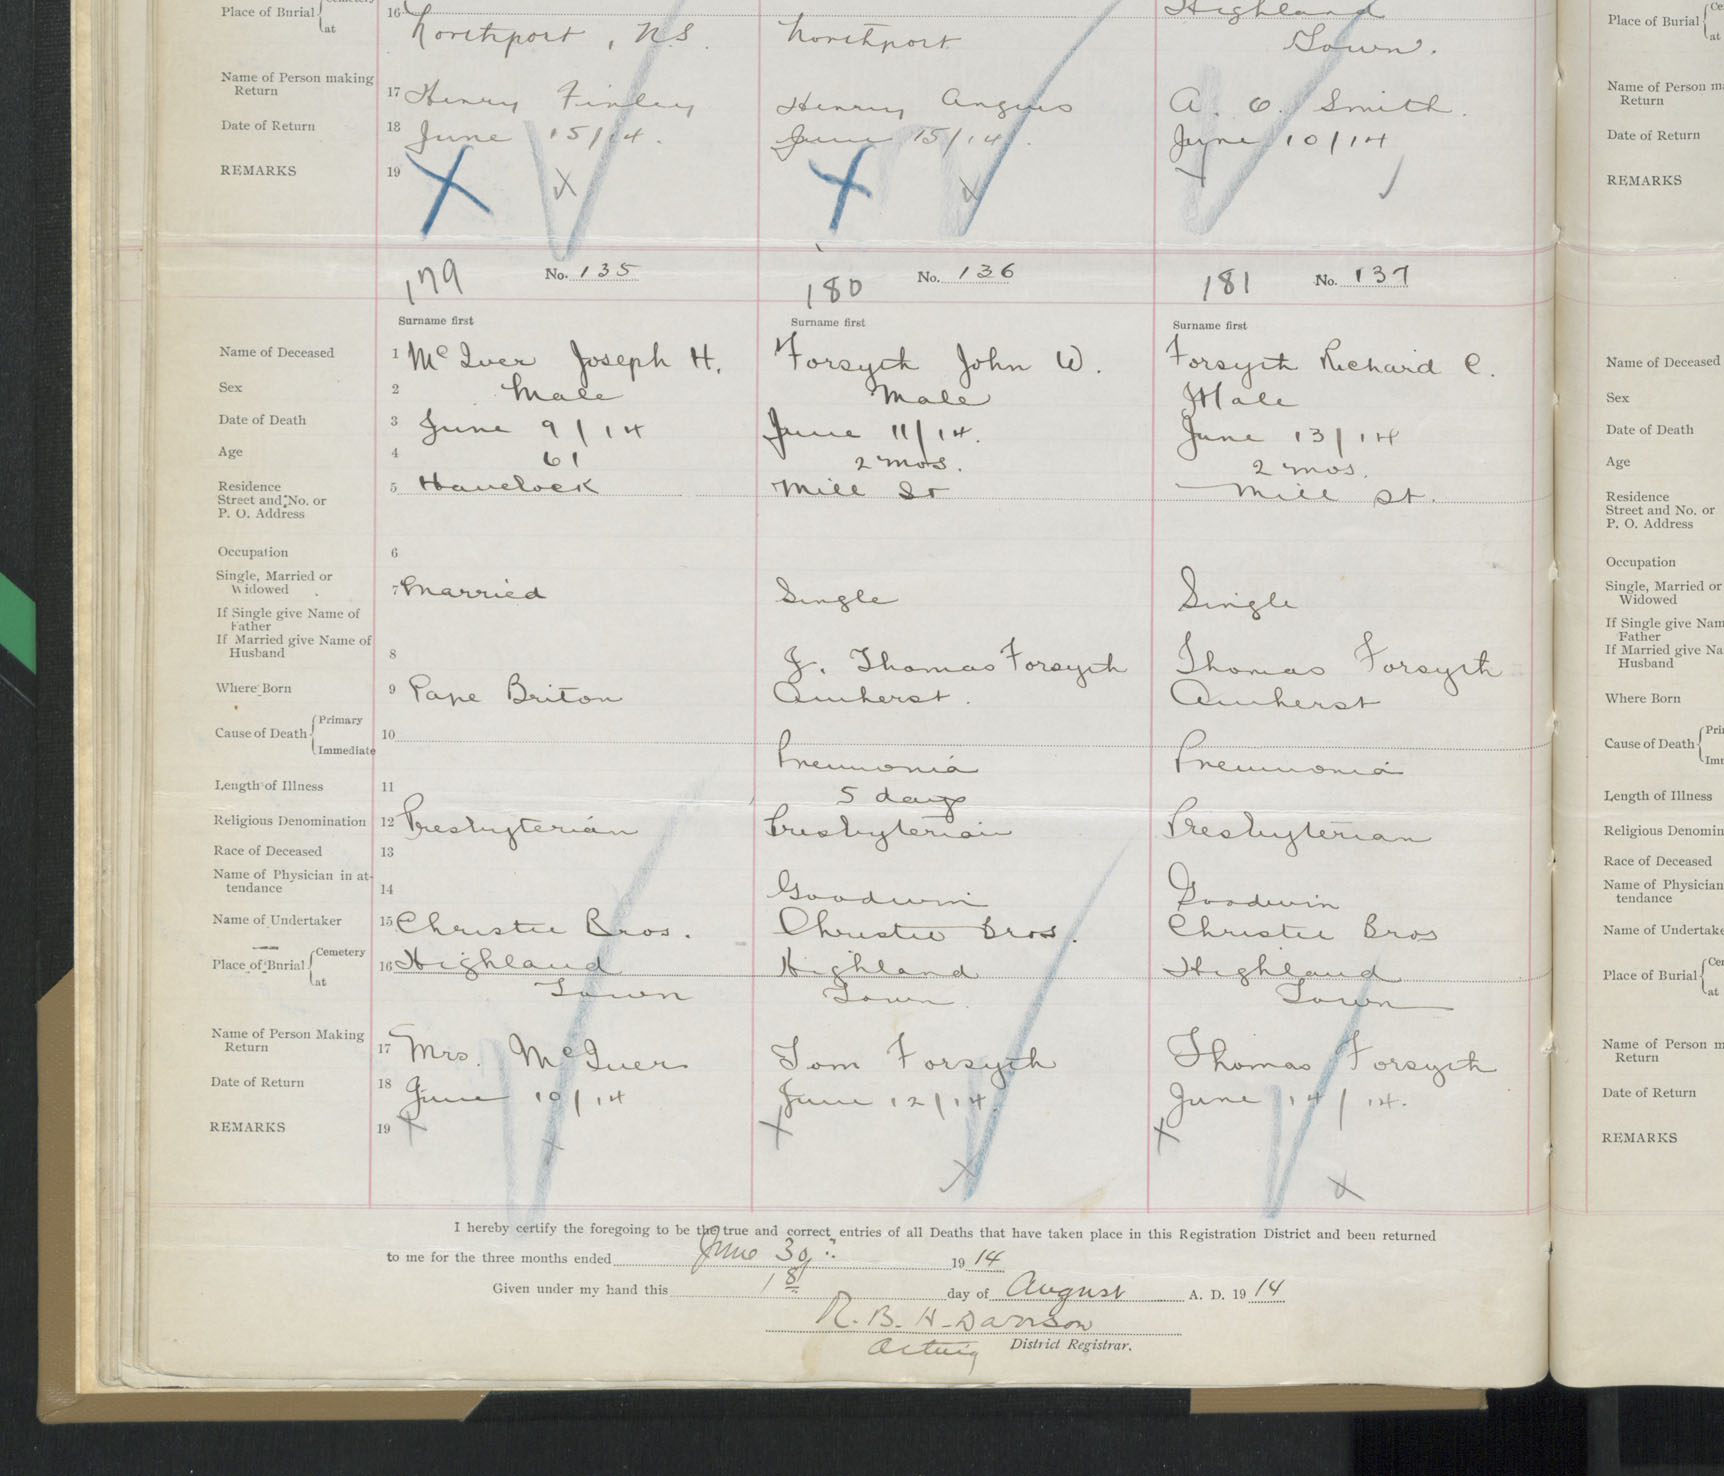 Place of Burial Cemetery at 16 Northport, N.S. Northport Highland Town.
Name of Person making Return 17 Henry Finley Henry Angus A. O. Smith.
Date of Return 18 June 15/14. June 15/14. June 10/14
REMARKS 19
179 No. 135 180 No. 136 181 No. 137
Surname first Surname first Surname first
Name of Deceased 1 McIver Joseph H. Forsyth John W. Forsyth Richard C.
Sex 2 Male Male Male
Date of Death 3 June 9/14 June 11/14. June 13/14
Age 4 61 2 mos. 2 mos.
Residence Street and No. or P. O. Address 5 Havelock Mill St Mill St.
Occupation 6
Single, Married or Widowed 7 Married Single Single
If Single give Name of Father
If Married give Name of Husband 8 J. Thomas Forsyth Thomas Forsyth
Where Born 9 Cape Briton Amherst. Amherst
Cause of Death Primary Immediate 10 Pneumonia Pneumonia
Length of Illness 11 5 days
Religious Denomination 12 Presbyterian Presbyterian Presbyterian
Race of Deceased 13
Name of Physician in attendance 14 Goodwin Goodwin
Name of Undertaker 15 Christie Bros. Christie Bros. Christie Bros
Place of Burial Cemetery at 16 Highland Town Highland Town Highland Town
Name of Person Making Return 17 Mrs. McIver Tom Forsyth Thomas Forsyth
Date of Return 18 June 10/14 June 12/14. June 14/14.
REMARKS 19
I hereby certify the foregoing to be the true and correct entries of all Deaths that have taken place in this Registration District and been returned
to me for the three months ended June 30 1914
Given under my hand this 18 day of August A. D. 1914
R. B. H. Davison
Acting District Registrar.
Place of Burial
at
Name of Person
Return
Date of Return
REMARKS
Name of Deceased
Sex
Date of Death
Age
Residence
Street and No. or
P. O. Address
Occupation
Single, Married or
Widowed
If Single give
Father
If Married give
Husband
Where Born
Cause of Death
Length of Illness
Religious
Race of Deceased
Name of Physician
tendance
Name of
Place of Burial
at
Name of Person
Return
Date of Return
REMARKS